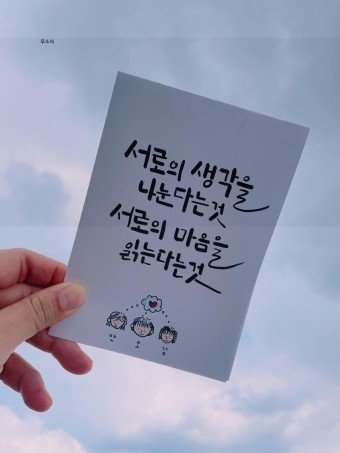 무소식
서로의 생각을
나눈다는것
서로의 마음을
읽는다는것
안 오 김